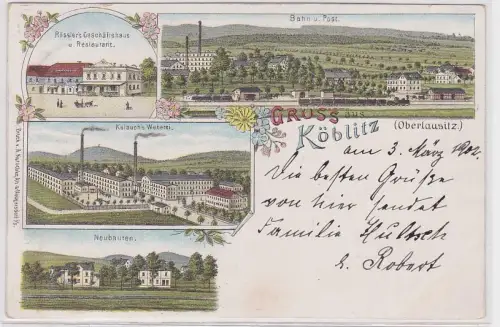 Rösslers Geschäftshaus
u. Restaurant.
Bahn u. Post.
GRUSS aus
KÖBLITZ
(Oberlausitz.)
Kalauch's Weberei.
Neubauten.
am 3. März 1902.
Die besten Grüße
von hier sendet
Familie Hultsch
Robert